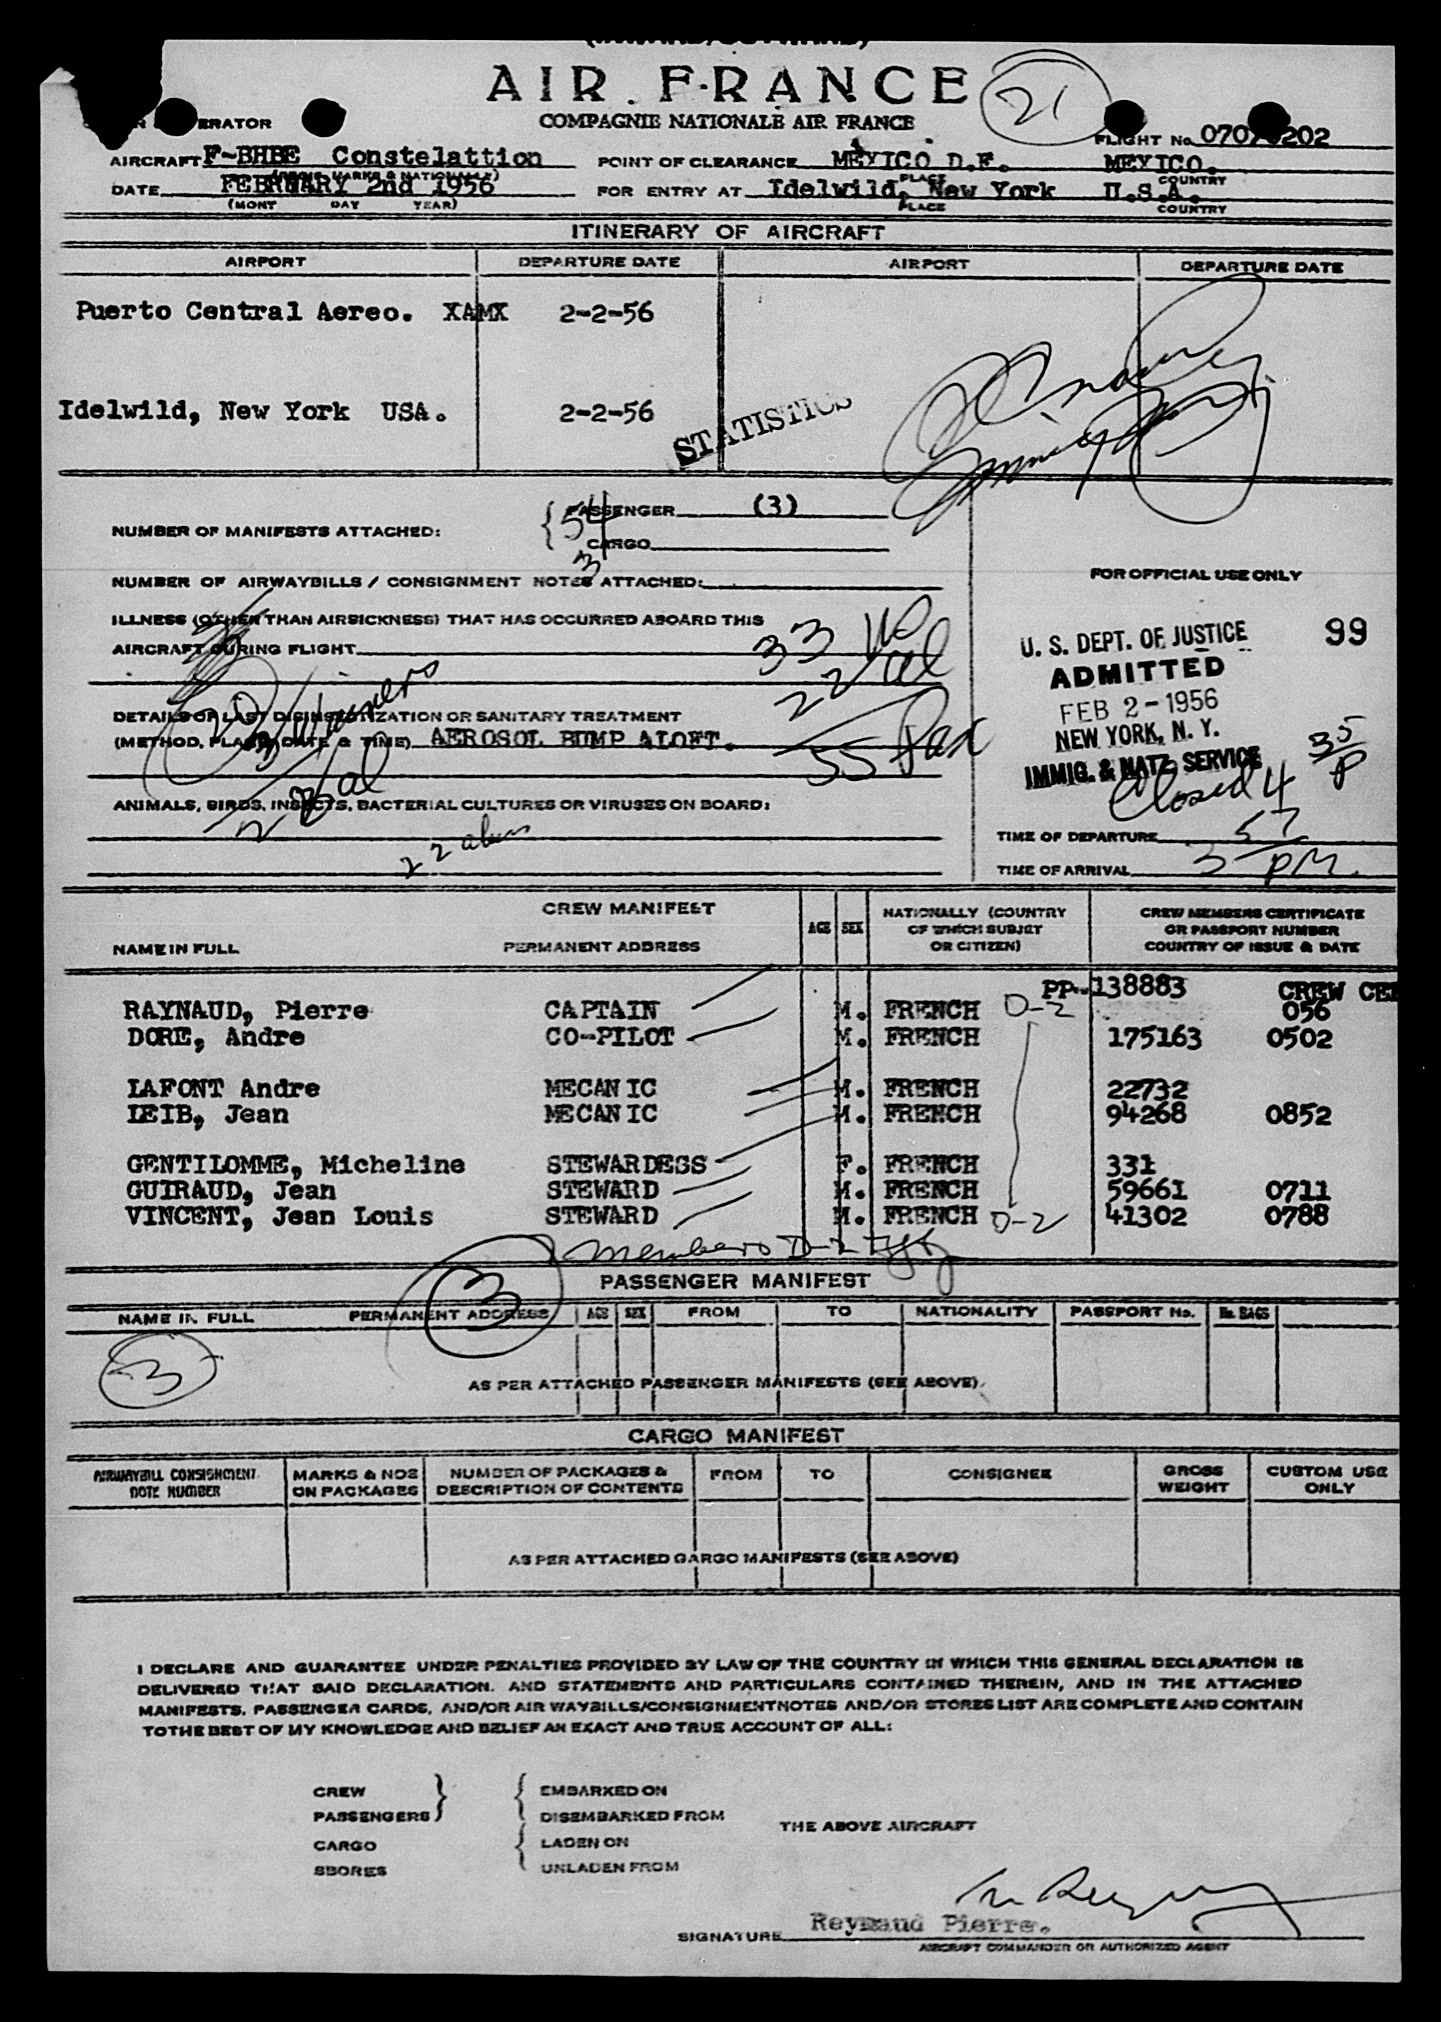 AIR FRANCE
21
COMPAGNIE NATIONALE AIR FRANCE
ERATOR
FLIGHT No. 070 202
AIRCRAFT F-BHBE Constelattion POINT OF CLEARANCE MEXICO D.F. MEXICO.
PLACE COUNTRY
DATE FEBRUARY 2nd 1956 FOR ENTRY AT Idelwild, New York U.S.A.
(MONT DAY YEAR) PLACE COUNTRY
ITINERARY OF AIRCRAFT
AIRPORT DEPARTURE DATE AIRPORT DEPARTURE DATE
Puerto Central Aereo. XAMX 2-2-56
Idelwild, New York USA. 2-2-56
STATISTICS
NUMBER OF MANIFESTS ATTACHED: { PASSENGER (3)
54
CARGO
3
NUMBER OF AIRWAYBILLS / CONSIGNMENT NOTES ATTACHED:
FOR OFFICIAL USE ONLY
ILLNESS (OTHER THAN AIRSICKNESS) THAT HAS OCCURRED ABOARD THIS
AIRCRAFT DURING FLIGHT
33
22 al
55 Pax
U. S. DEPT. OF JUSTICE 99
ADMITTED
FEB 2-1956
NEW YORK, N. Y.
IMMIG. & NATZ. SERVICE
Closed 4 35/P
DETAILS OF LAST DISINSECTIZATION OR SANITARY TREATMENT
(METHOD, PLACE, DATE & TIME) AEROSOL BUMP ALOFT.
ANIMALS, BIRDS, INSECTS, BACTERIAL CULTURES OR VIRUSES ON BOARD:
22
TIME OF DEPARTURE
TIME OF ARRIVAL 3 57/PM.
CREW MANIFEST
NAME IN FULL PERMANENT ADDRESS AGE SEX NATIONALLY (COUNTRY OF WHICH SUBJET OR CITIZEN) CREW MEMBERS CERTIFICATE OR PASSPORT NUMBER COUNTRY OF ISSUE & DATE
PP- 138883 CREW CE
RAYNAUD, Pierre CAPTAIN M. FRENCH D-2 056
DORE, Andre CO-PILOT M. FRENCH 175163 0502
LAFONT Andre MECANIC M. FRENCH 22732
LEIB, Jean MECANIC M. FRENCH 94268 0852
GENTILOMME, Micheline STEWARDESS F. FRENCH 331
GUIRAUD, Jean STEWARD M. FRENCH 59661 0711
VINCENT, Jean Louis STEWARD M. FRENCH D-2 41302 0788
7 members D-2
PASSENGER MANIFEST
3
NAME IN FULL PERMANENT ADDRESS AGE SEX FROM TO NATIONALITY PASSPORT No. No. BAGS
3
AS PER ATTACHED PASSENGER MANIFESTS (SEE ABOVE).
CARGO MANIFEST
AIRWAYBILL CONSIGNMENT NOTE NUMBER MARKS & NOS ON PACKAGES NUMBER OF PACKAGES & DESCRIPTION OF CONTENTS FROM TO CONSIGNEE GROSS WEIGHT CUSTOM USE ONLY
AS PER ATTACHED CARGO MANIFESTS (SEE ABOVE)
I DECLARE AND GUARANTEE UNDER PENALTIES PROVIDED BY LAW OF THE COUNTRY IN WHICH THIS GENERAL DECLARATION IS
DELIVERED THAT SAID DECLARATION. AND STATEMENTS AND PARTICULARS CONTAINED THEREIN, AND IN THE ATTACHED
MANIFESTS. PASSENGER CARDS, AND/OR AIR WAYBILLS/CONSIGNMENTNOTES AND/OR STORES LIST ARE COMPLETE AND CONTAIN
TOTHE BEST OF MY KNOWLEDGE AND BELIEF AN EXACT AND TRUE ACCOUNT OF ALL:
CREW } { EMBARKED ON
PASSENGERS DISEMBARKED FROM
THE ABOVE AIRCRAFT
CARGO { LADEN ON
SBORES UNLADEN FROM
SIGNATURE Reymaud Pierre.
AIRCRAFT COMMANDER OR AUTHORIZED AGENT